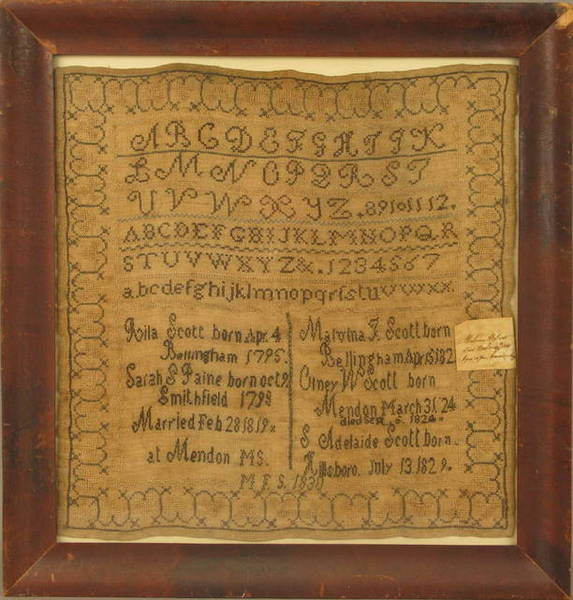 ABCDEFGHIJK
LMNOPQRST
UVWXYZ.89101112.
ABCDEFGHIJKLMNOPQR
STUVWXYZ&.1234567
abcdefghijklmnopqrſstuvwxx
Avila Scott born Apr. 4
Bellingham 1795.
Sarah S Paine born oct 9
Smithfield 1798
Married Feb 28 1819.
at Mendon MS.
Malvina F. Scott born
Bellingham Apr 15 182
Olney W Scott born
Mendon March 31 24
died Sept 6. 1824.
S Adelaide Scott born.
Attleboro. July 13. 1829.
M F S. 1830